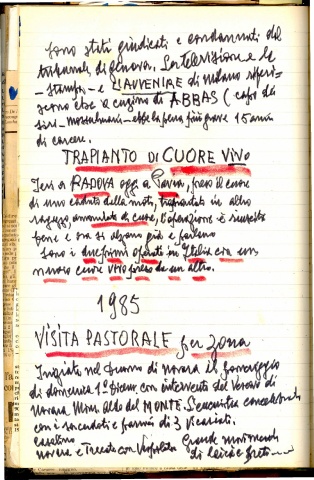 sono stati giudicati e condannati dal
tribunale di Genova. La televisione e la
stampa - e L'AVVENIRE di milano riferi-
scono che il cugino di ABBAS (capo dei
ebbe la pena più grave 15 anni
di carcere.
TRAPIANTO DI CUORE VIVO
Ieri a PADOVA oggi a Pavia, preso il cuore
di uno caduto dalla moto, trapiantato in altro
ragazzo, ammalato di cuore, l'operazione è riuscita
bene e ora si alzano già e parlano
Sono i due primi operati in Italia con un
nuovo cuore vivo preso da un altro.
1985
VISITA PASTORALE per zona
Iniziata nel duomo di novara il
di domenica 1ª con intervento del Vescovo di
Novara Mons. Aldo del MONTE. concelebrata
con i sacerdoti e di 3 Vicariati.
novara e Trecate con Grande
di laici e